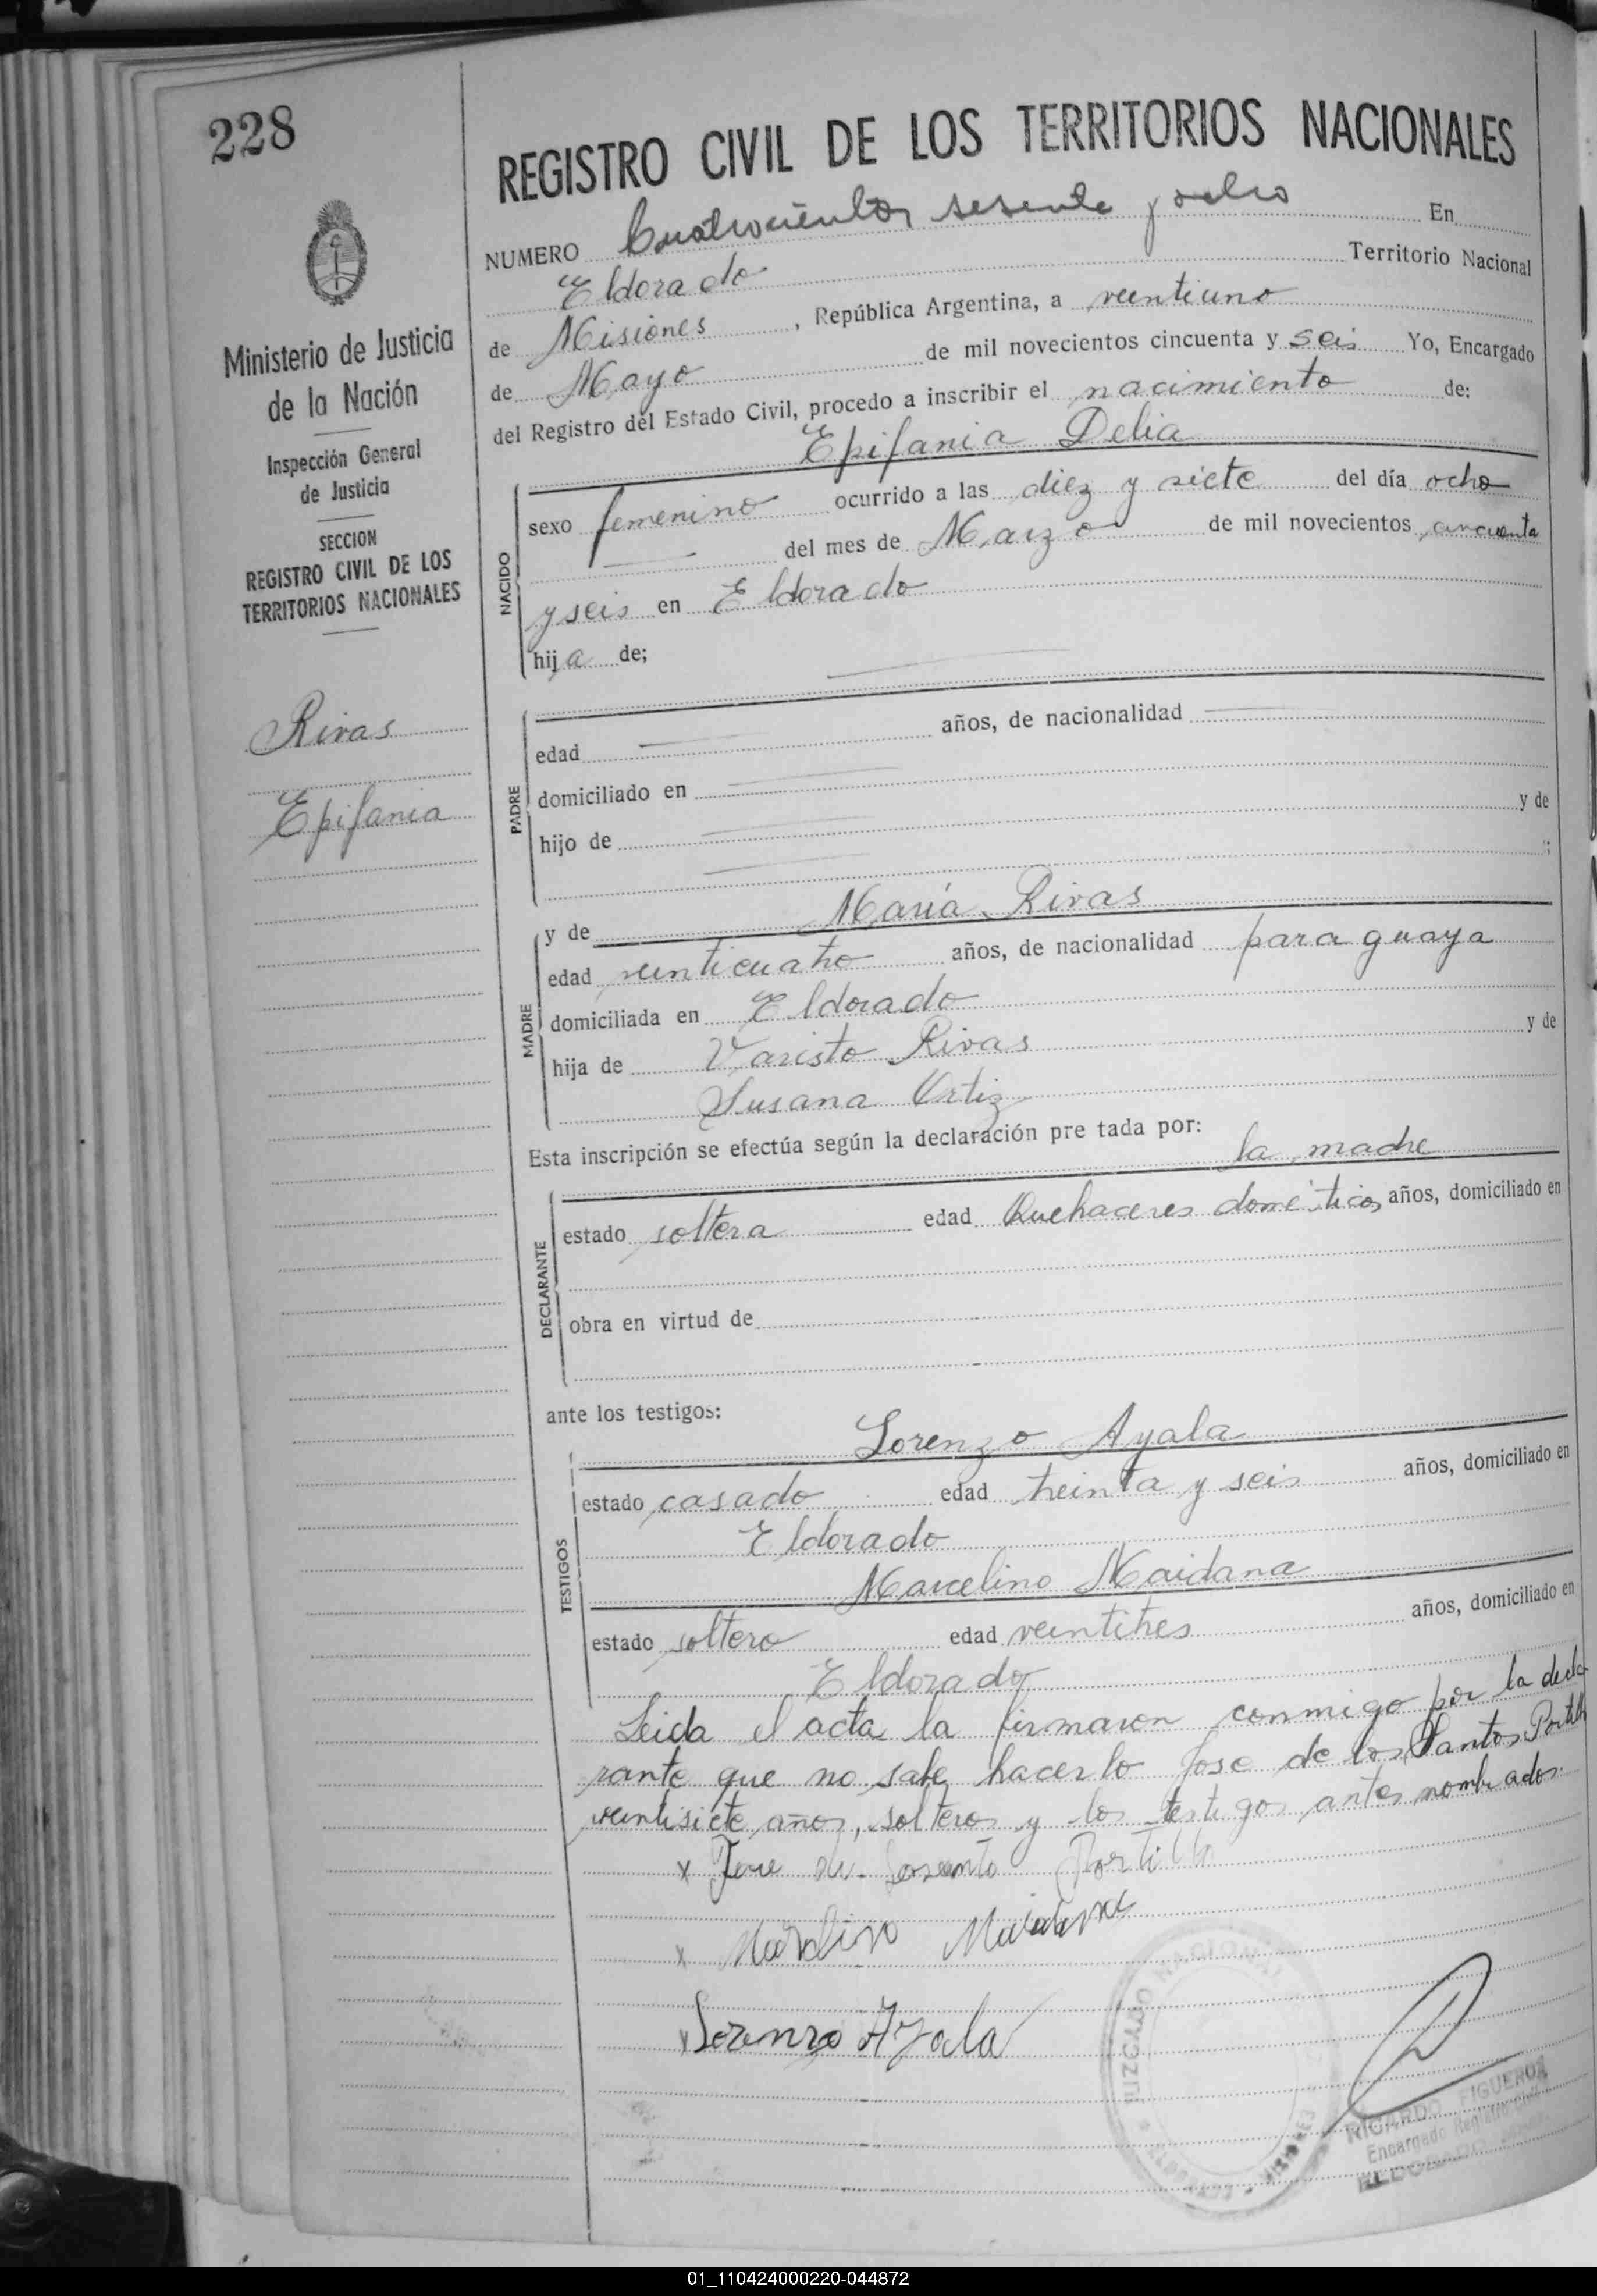 228
REGISTRO CIVIL DE LOS TERRITORIOS NACIONALES
NUMERO Cuatrocientos sesenta y ocho En
Eldorado Territorio Nacional
de Misiones, República Argentina, a veintiuno
de Mayo de mil novecientos cincuenta y seis Yo, Encargado
del Registro del Estado Civil, procedo a inscribir el nacimiento de:
Epifania Delia
Ministerio de Justicia
de la Nación
Inspección General
de Justicia
SECCION
REGISTRO CIVIL DE LOS
TERRITORIOS NACIONALES
Rivas
Epifania
NACIDO
sexo femenino ocurrido a las diez y siete del día ocho
del mes de Marzo de mil novecientos cincuenta
y seis en Eldorado
hija de;
PADRE
edad años, de nacionalidad
domiciliado en
hijo de y de
;
y de María Rivas
MADRE
edad veinticuatro años, de nacionalidad paraguaya
domiciliada en Eldorado
hija de Varisto Rivas y de
Susana Ortiz
Esta inscripción se efectúa según la declaración pre tada por:
la madre
DECLARANTE
estado soltera edad Quehaceres domésticos años, domiciliado en
obra en virtud de
ante los testigos:
Lorenzo Ayala
TESTIGOS
estado casado edad treinta y seis años, domiciliado en
Eldorado
Marcelino Maidana
estado soltero edad veintitres años, domiciliado en
Eldorado
Leida el acta la firmaron conmigo por la decla
rante que no sabe hacerlo Jose de los Santos Portillo
veintisiete años, soltero y los testigos antes nombrados.
x Jose Portillo
x Maidana
x Lorenzo Ayala
JUZGADO NACIONAL
MISIONES
RICARDO FIGUEROA
Encargado Registro Civil
ELDORADO
01_110424000220-044872